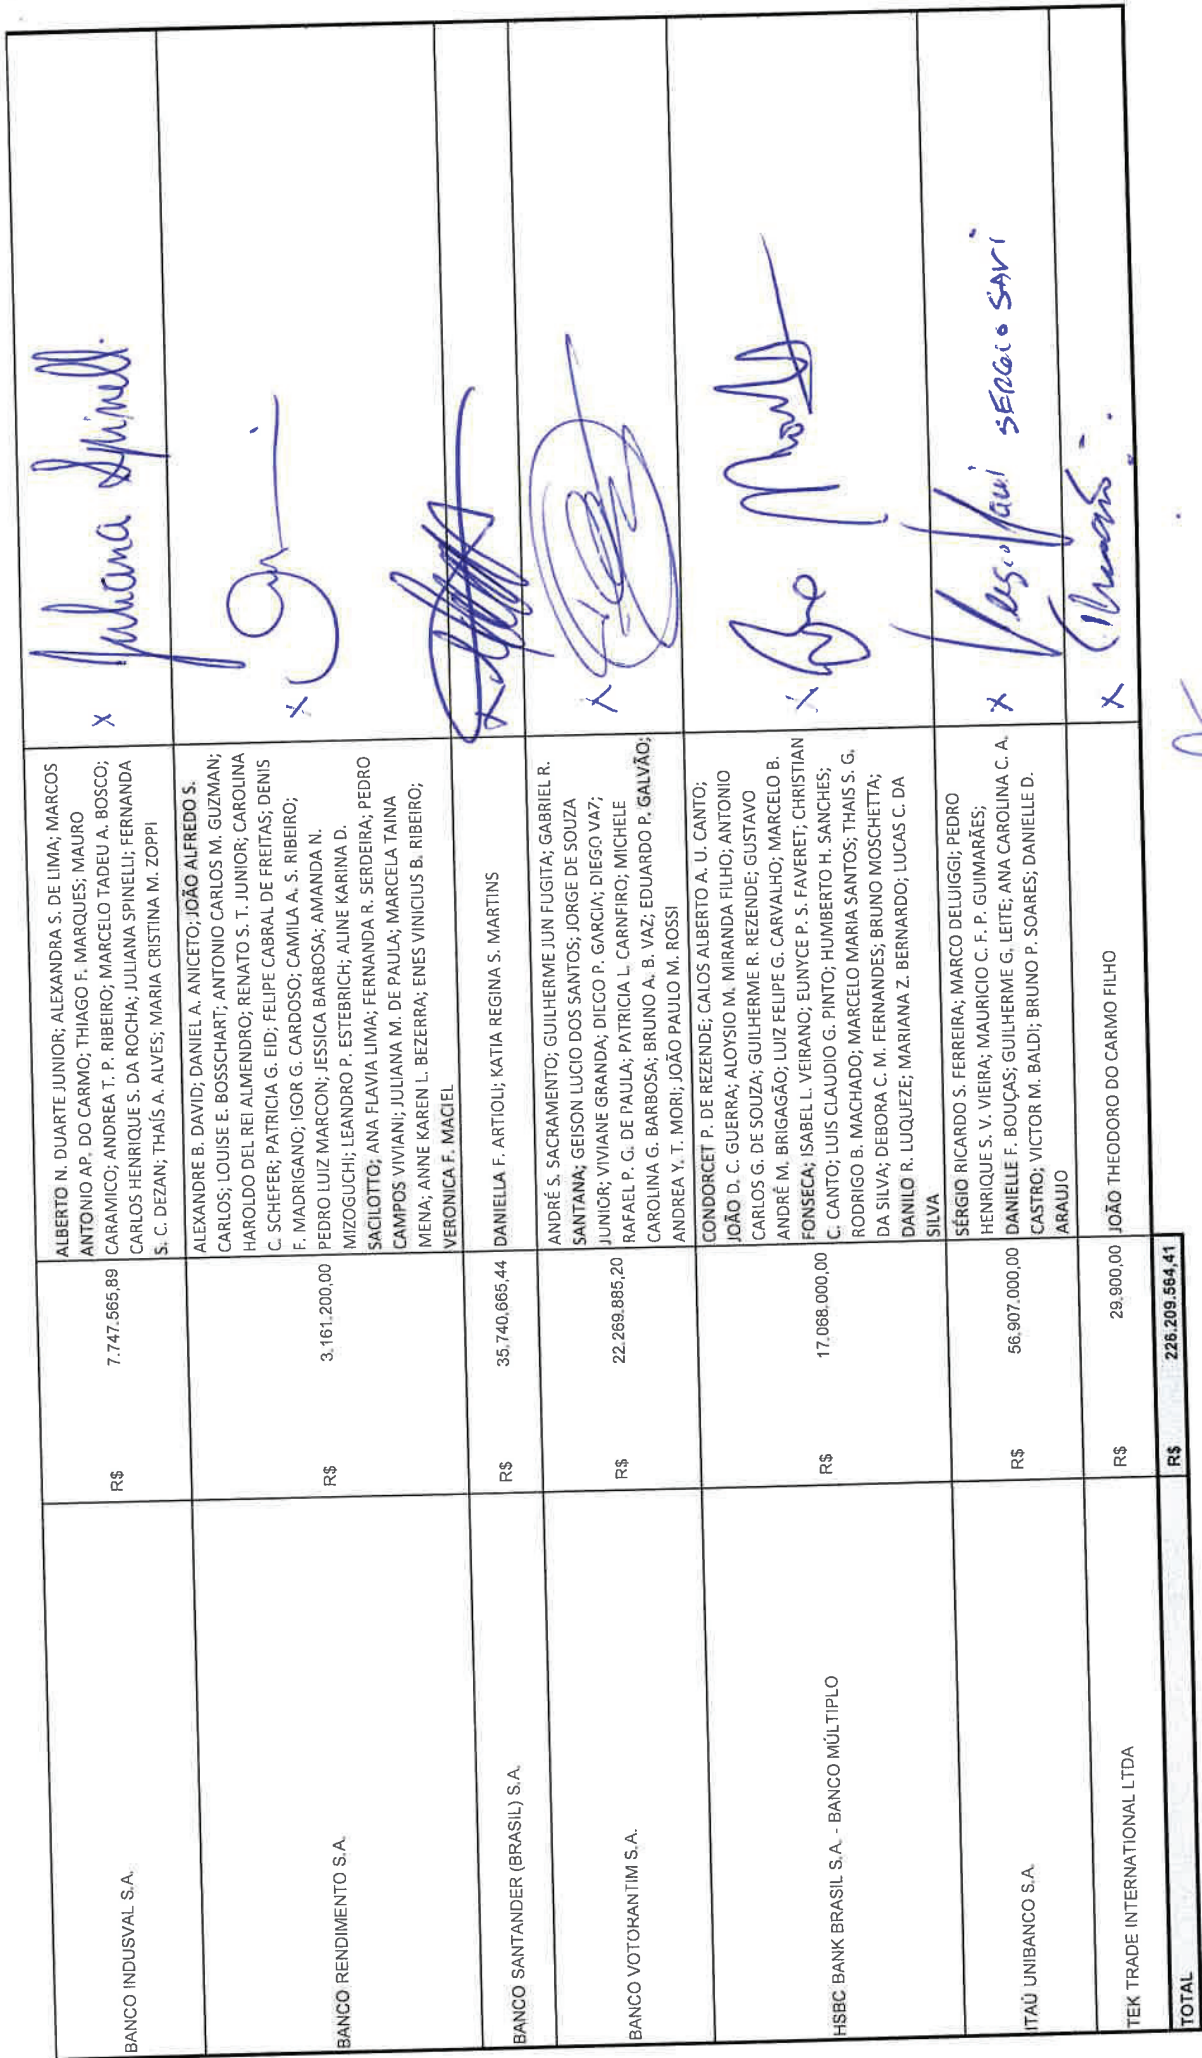 BANCO INDUSVAL S.A.
R$ 7.747.565,89
ALBERTO N. DUARTE JUNIOR; ALEXANDRA S. DE LIMA; MARCOS
ANTONIO AP. DO CARMO; THIAGO F. MARQUES; MAURO
CARAMICO; ANDREA T. P. RIBEIRO; MARCELO TADEU A. BOSCO;
CARLOS HENRIQUE S. DA ROCHA; JULIANA SPINELI; FERNANDA
S. C. DEZAN; THAÍS A. ALVES; MARIA CRISTINA M. ZOPPI
x Juliana Spinelli.
BANCO RENDIMENTO S.A.
R$ 3.161.200,00
ALEXANDRE B. DAVID; DANIEL A. ANICETO; JOÃO ALFREDO S.
CARLOS; LOUISE E. BOSSCHART; ANTONIO CARLOS M. GUZMAN;
HAROLDO DEL REI ALMENDRO; RENATO S. T. JUNIOR; CAROLINA
C. SCHEFER; PATRICIA G. EID; FELIPE CABRAL DE FREITAS; DENIS
F. MADRIGANO; IGOR G. CARDOSO; CAMILA A. S. RIBEIRO;
PEDRO LUIZ MARCON; JESSICA BARBOSA; AMANDA N.
MIZOGUCHI; LEANDRO P. ESTEBRICH; ALINE KARINA D.
SACILOTTO; ANA FLAVIA LIMA; FERNANDA R. SERDEIRA; PEDRO
CAMPOS VIVIANI; JULIANA M. DE PAULA; MARCELA TAINA
MENA; ANNE KAREN L. BEZERRA; ENES VINICIUS B. RIBEIRO;
VERONICA F. MACIEL
x
BANCO SANTANDER (BRASIL) S.A.
R$ 35.740.665,44
DANIELLA F. ARTIOLI; KATIA REGINA S. MARTINS
x
BANCO VOTORANTIM S.A.
R$ 22.269.885,20
ANDRÉ S. SACRAMENTO; GUILHERME JUN FUGITA; GABRIEL R.
SANTANA; GEISON LUCIO DOS SANTOS; JORGE DE SOUZA
JUNIOR; VIVIANE GRANDA; DIEGO P. GARCIA; DIEGO VAZ;
RAFAEL P. G. DE PAULA; PATRICIA L. CARNFIRO; MICHELE
CAROLINA G. BARBOSA; BRUNO A. B. VAZ; EDUARDO P. GALVÃO;
ANDREA Y. T. MORI; JOÃO PAULO M. ROSSI
x
HSBC BANK BRASIL S.A. - BANCO MÚLTIPLO
R$ 17.068.000,00
CONDORCET P. DE REZENDE; CALOS ALBERTO A. U. CANTO;
JOÃO D. C. GUERRA; ALOYSIO M. MIRANDA FILHO; ANTONIO
CARLOS G. DE SOUZA; GUILHERME R. REZENDE; GUSTAVO
ANDRÉ M. BRIGAGÃO; LUIZ FELIPE G. CARVALHO; MARCELO B.
FONSECA; ISABEL L. VEIRANO; EUNYCE P. S. FAVERET; CHRISTIAN
C. CANTO; LUIS CLAUDIO G. PINTO; HUMBERTO H. SANCHES;
RODRIGO B. MACHADO; MARCELO MARIA SANTOS; THAIS S. G.
DA SILVA; DEBORA C. M. FERNANDES; BRUNO MOSCHETTA;
DANILO R. LUQUEZE; MARIANA Z. BERNARDO; LUCAS C. DA
SILVA
x
ITAÚ UNIBANCO S.A.
R$ 56.907.000,00
SÉRGIO RICARDO S. FERREIRA; MARCO DELUIGGI; PEDRO
HENRIQUE S. V. VIEIRA; MAURICIO C. F. P. GUIMARÃES;
DANIELLE F. BOUÇAS; GUILHERME G. LEITE; ANA CAROLINA C. A.
CASTRO; VICTOR M. BALDI; BRUNO P. SOARES; DANIELLE D.
ARAUJO
x SERGIO SAVI
TEK TRADE INTERNATIONAL LTDA
R$ 29.900,00
JOÃO THEODORO DO CARMO FILHO
x
TOTAL R$ 226.209.564,41